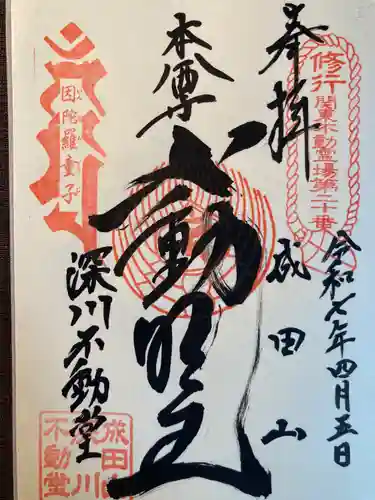 奉拝
修行
関東不動霊場第二十番
令和七年四月五日
成田山
本尊
不動明王
因陀羅童子
深川不動堂
成田山
深川
不動堂